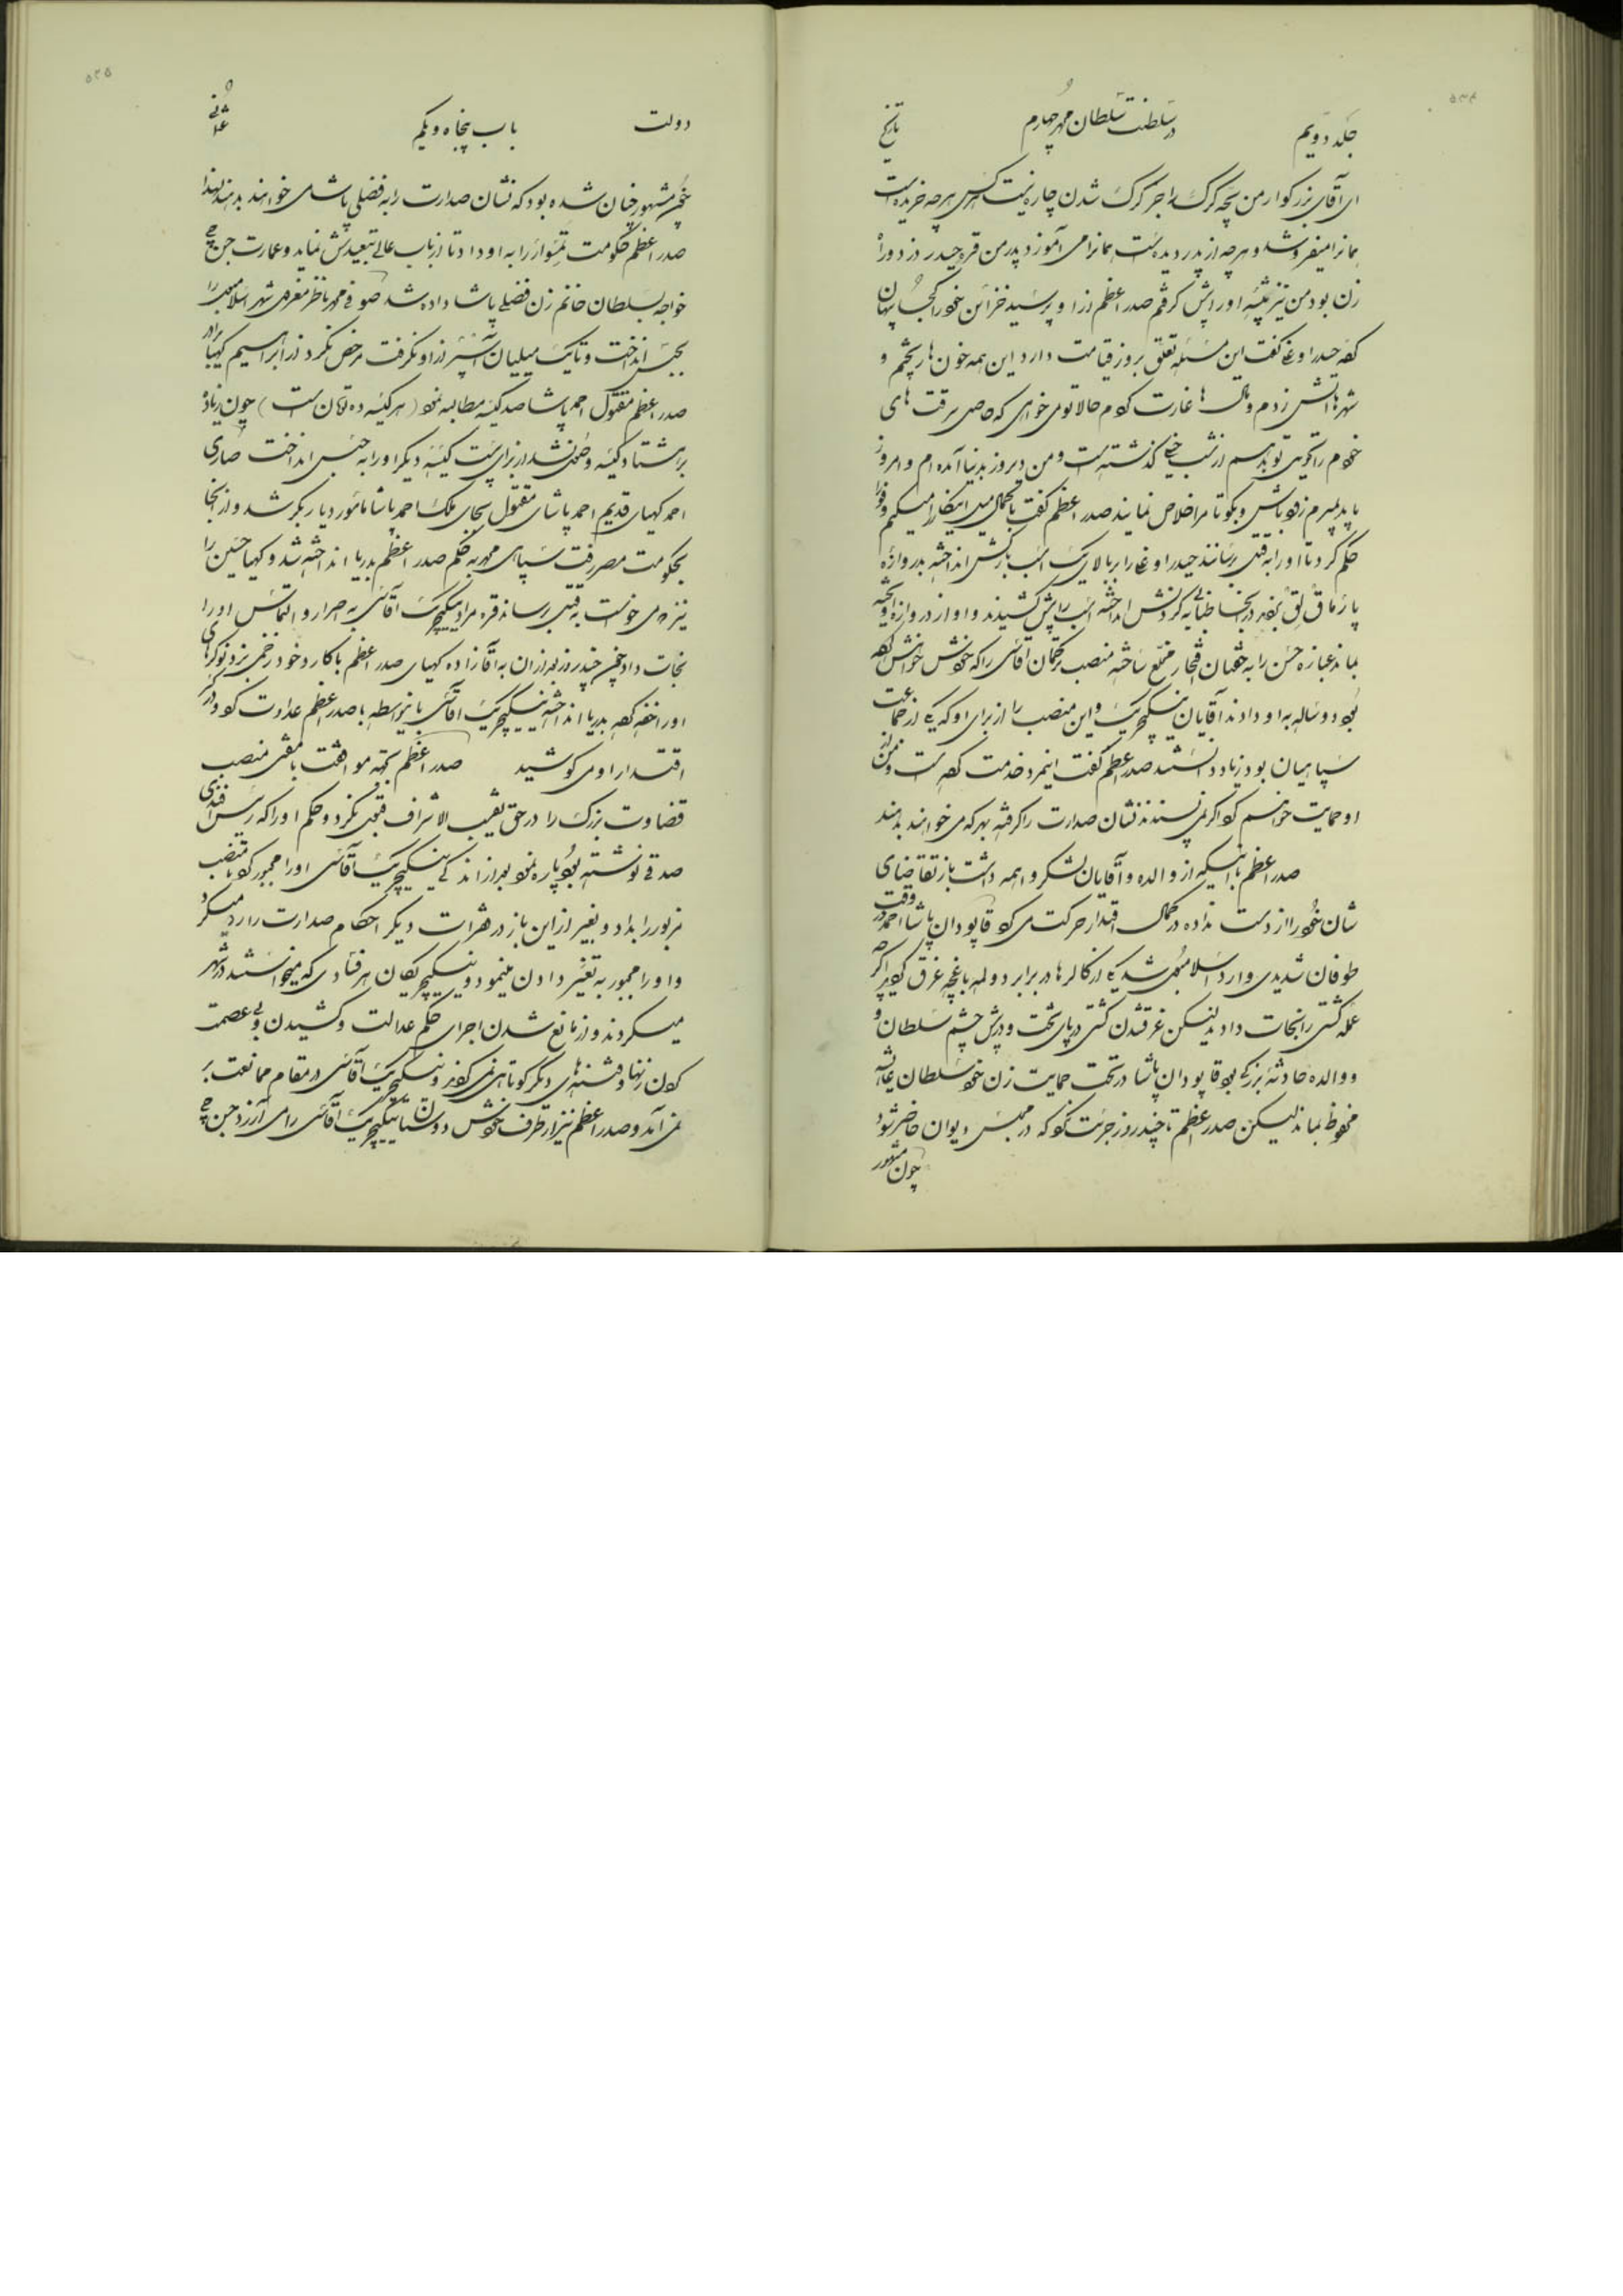 ۵۳۴
جلد دویم در سلطنت سلطان محمد چهارم تاریخ
ای آقای بزرکوار من بچه کرک را جز کرک شدن چاره نیست کسی هر چه خریده است
همانرا میفروشد و هر چه از پدر دیده است همانرا می آموزد پدر من قره حیدر دزد و راه
زن بود من نیز پیشه او را پیش کرفتم صدر اعظم از او پرسید خزائن خود را کجا پنهان
کرده حیدر اوغلی کفت این مسئله تعلق بروز قیامت دارد این همه خون ها ریختم و
شهرها آتش زدم و مال ها غارت کردم حالا تو می خواهی که حاصل سرقت های
خودم را بکوئی تو بدهم از شب خیلی کذشته است و من دیروز بدنیا آمده ام و امروز
باید بمیرم زود باش و بکو تا مرا خلاص نمایند صدر اعظم کفت با کمال میل اینکار را میکنم و فورا
حکم کرد تا او را به قتل رسانند حیدر اوغلی را بر بالای یک اسب بارکش انداخته بدروازه
پارماق قپو برده در آنجا طنابی به کردنش انداخته اسب را پیش کشیدند و او از دروازه آویخته
بماند عبازه حسن را به خدمت منصب ترکمان آقاسی را که خودش خواهش کرده
بود دو ساله به او دادند آقایان ینیکچریک این منصب را از برای او که یکی از جماعت
سپاهیان بود زیاد دانستند صدر اعظم کفت اینمرد خدمت کرده است و من از
او حمایت خواهم کرد اکر نمی پسندند نشان صدارت را کرفته بهر که می خواهند بدهند
صدر اعظم با اینکه از والده و آقایان لشکر واهمه داشت باز تقاضای
شان خود را از دست نداده در کمال اقتدار حرکت می کرد قاپودان پاشا احمد در وقت
طوفان شدیدی وارد اسلامبول شد یکی از کالرها در برابر دولمه باغچه غرق کردید اکر چه
عمله کشتی را نجات دادند لیکن غرق شدن کشتی در پای تخت و در پیش چشم سلطان و
و والده حادثه بزرکی بود قاپودان پاشا در تحت حمایت زن خود سلطان عایشه
محفوظ بماند لیکن صدر اعظم تا چند روز جرئت نکرد که در مجلس دیوان حاضر شود
چون مشهور
۵۳۵
دولت باب پنجاه و یکم عثمانی
چون مشهور چنان شده بود که نشان صدارت را به فضلی پاشا می خواهند بدهند لهذا
صدر اعظم حکومت تمشوار را به او داد تا از باب عالی تبعیدش نماید و عمارت جن جی
خواجه بسلطان خانم زن فضلی پاشا داده شد صوفی محمد ناظر معزول شهر اسلامبول را
بحبس انداخت و تا یک میلیان آسپر از او نکرفت مرخص نکرد از ابراهیم کهیا برادر
صدر اعظم مقتول احمد پاشا صد کیسه مطالبه نمود (هر کیسه ده تومان است) چون زیاده
بر هشتاد کیسه وصول نشد از برای بیست کیسه دیکر او را به حبس انداخت صاری
احمد کهیای قدیم احمد پاشای مقتول بجای ملک احمد پاشا مامور دیاربکر شد و از آنجا
بحکومت مصر رفت سپاهی محمد به حکم صدر اعظم بدریا انداخته شد و کهیا حسین را
نیز می خواست به قتل برساند قره مراد ینیکچریک آقاسی به اصرار و التماس او را
نجات داد چون چند روز بعد از آن به آقازاده کهیای صدر اعظم با کارد خود زخمی بزد نوکرهای
او را خفه کرده بدریا انداختند ینیکچریک آقاسی باینواسطه با صدر اعظم عداوت کرد و در
اقتدار او می کوشید صدر اعظم بجهت موافقت با مفتی منصب
قضاوت بزرک را در حق نقیب الاشراف قبول نکرد و حکم او را که رئیس افندی
صدقی نوشته بود پاره نمود بعد از اندکی ینیکچریک آقاسی او را مجبور کرد تا منصب
مزبور را بداد و بغیر از این باز در فقرات دیکر احکام صدارت را رد میکرد
و او را مجبور به تغییر دادن مینمود و ینیکچریکان هر فسادی که میخواستند در شهر
میکردند و از مانع شدن اجرای حکم عدالت و کشیدن و بی عصمت
کردن زنها و فتنه های دیکر کوتاهی نمی کردند و ینیکچریک آقاسی در مقام ممانعت بر
نمی آمد و صدر اعظم نیز از طرف خودش دوستان ینیکچریک آقاسی را می آزرد جن جی